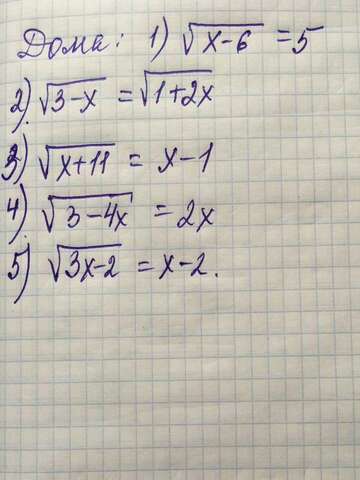 Дома: 1) √x-6 = 5
2) √3-x = √1+2x
3) √x+11 = x-1
4) √3-4x = 2x
5) √3x-2 = x-2.